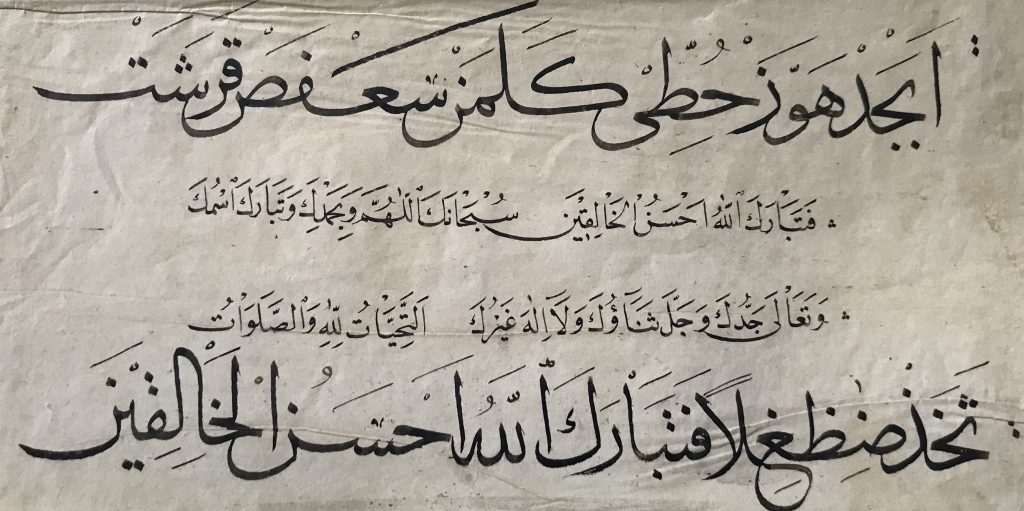 اَبْجَدْ هَوَّزْ حُطِّيْ كَلَمَنْ سَعَفَصْ قَرَشَتْ
فَتَبَارَكَ اللهُ اَحْسَنُ الْخَالِقِيْنَ سُبْحَانَكَ اللّٰهُمَّ وَبِحَمْدِكَ وَتَبَارَكَ اسْمُكَ
وَتَعَالٰى جَدُّكَ وَجَلَّ ثَنَآؤُكَ وَلَآ اِلٰهَ غَيْرُكَ اَلتَّحِيَّاتُ لِلّٰهِ وَالصَّلَوَاتُ
ثَخَذْ ضَظَغِلًا فَتَبَارَكَ اللهُ اَحْسَنُ الْخَالِقِيْنَ